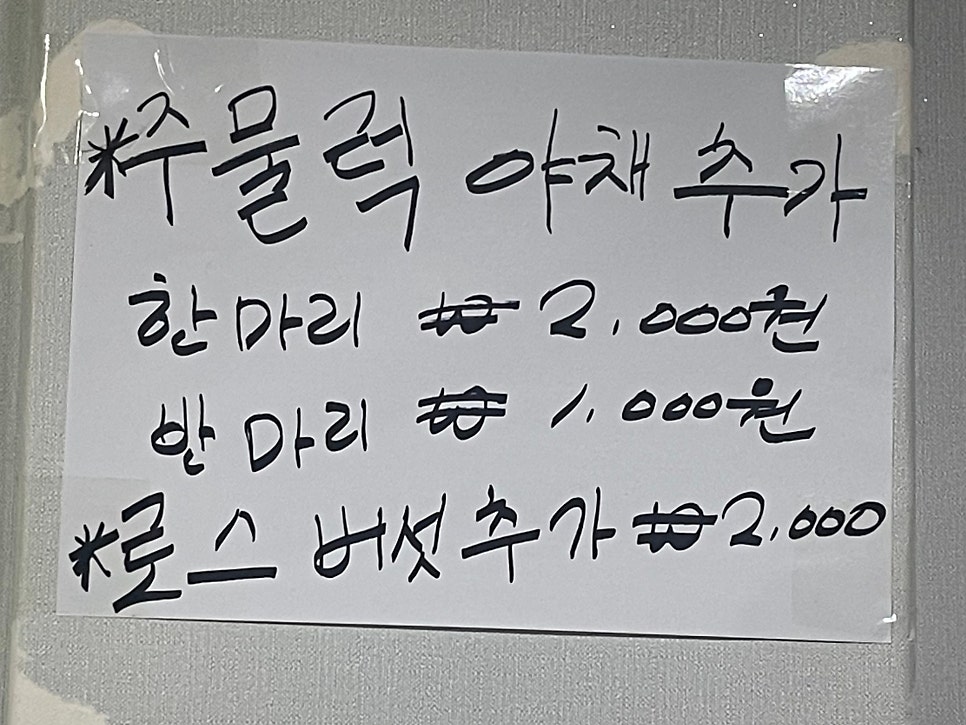 *주물럭 야채 추가
한마리 ₩ 2,000원
반마리 ₩ 1,000원
*로스 버섯 추가 ₩2,000